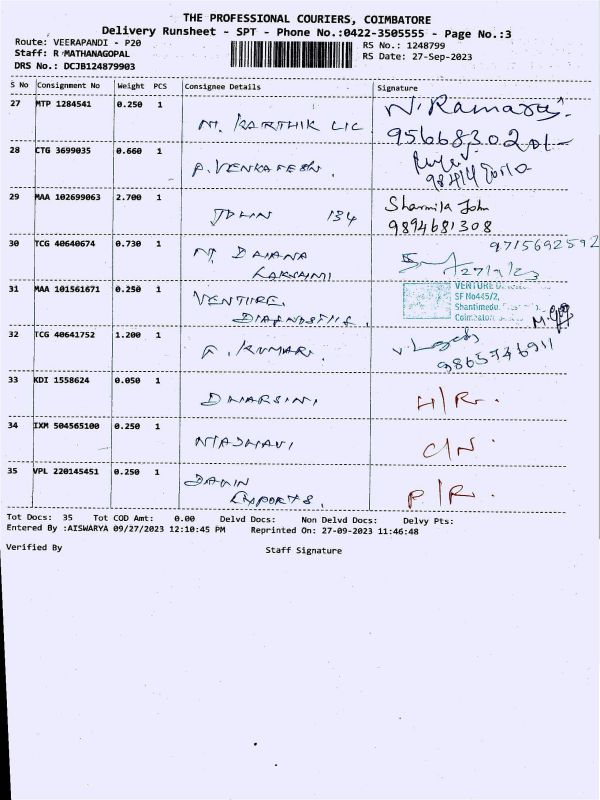 THE PROFESSIONAL COURIERS, COIMBATORE
Delivery Runsheet - SPT - Phone No.:0422-3505555 - Page No.:3
Route: VEERAPANDI - P20
RS No.: 1248799
Staff: R MATHANAGOPAL
RS Date: 27-Sep-2023
DRS No.: DCJB124879903
S No Consignment No Weight PCS Consignee Details Signature
27 MTP 1284541 0.250 1 M. KARTHIK LIC N. Ramasy
9566830201
28 CTG 3699035 0.660 1 P. VENKATESN.
29 MAA 102699063 2.700 1 JOHN 134 Sharmila John
9894681308
30 TCG 40640674 0.730 1 M. DAIANA LAKSHMI 9715692592
27/9/23
31 MAA 101561671 0.250 1 VENTURE DIAGNOSTICS. VENTURE
SF No445/2,
Shantimedu,
Coimbatore
32 TCG 40641752 1.200 1 KUMAR. 9865746911
33 KDI 1558624 0.050 1 DHARSINI H/R.
34 IXM 504565100 0.250 1 C/N.
35 VPL 220145451 0.250 1 EXPORTS. P/R.
Tot Docs: 35 Tot COD Amt: 0.00 Delvd Docs: Non Delvd Docs: Delvy Pts:
Entered By :AISWARYA 09/27/2023 12:10:45 PM Reprinted On: 27-09-2023 11:46:48
Verified By Staff Signature